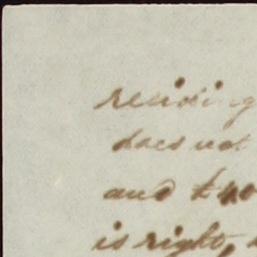 residing
does not
and £40
is right,